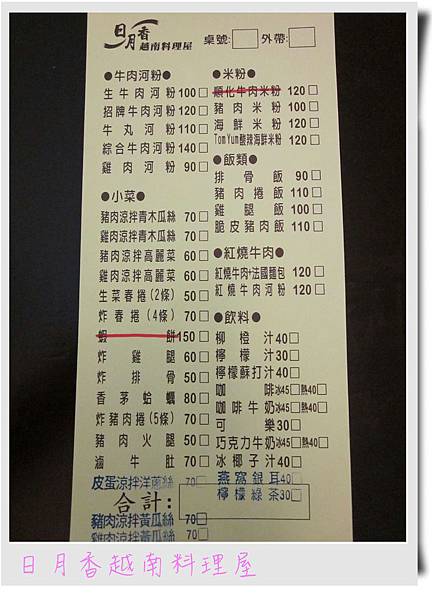 日月香
越南料理屋
桌號: 外帶:
●牛肉河粉●
生牛肉河粉100□
招牌牛肉河粉120□
牛丸河粉110□
綜合牛肉河粉140□
雞肉河粉90□
●小菜●
豬肉涼拌青木瓜絲70□
雞肉涼拌青木瓜絲70□
豬肉涼拌高麗菜60□
雞肉涼拌高麗菜60□
生菜春捲(2條)50□
炸春捲(4條)70□
蝦餅150□
炸雞腿60□
炸排骨50□
香茅蛤蠣80□
炸豬肉捲(5條)70□
豬肉火腿50□
滷牛肚70□
皮蛋涼拌洋蔥絲70□
合計:
豬肉涼拌黃瓜絲70□
雞肉涼拌黃瓜絲70□
●米粉●
順化牛肉米粉120□
豬肉米粉100□
海鮮米粉120□
TomYum酸辣海鮮米粉120□
●飯類●
排骨飯90□
豬肉捲飯110□
雞腿飯100□
脆皮豬肉飯110□
●紅燒牛肉●
紅燒牛肉+法國麵包120□
紅燒牛肉河粉120□
●飲料●
柳橙汁40□
檸檬汁30□
檸檬蘇打汁40□
咖啡冰45□熱40□
咖啡牛奶冰45□熱40□
可樂30□
巧克力牛奶冰45□熱40□
冰椰子汁40□
燕窩銀耳40□
檸檬綠茶30□
日月香越南料理屋